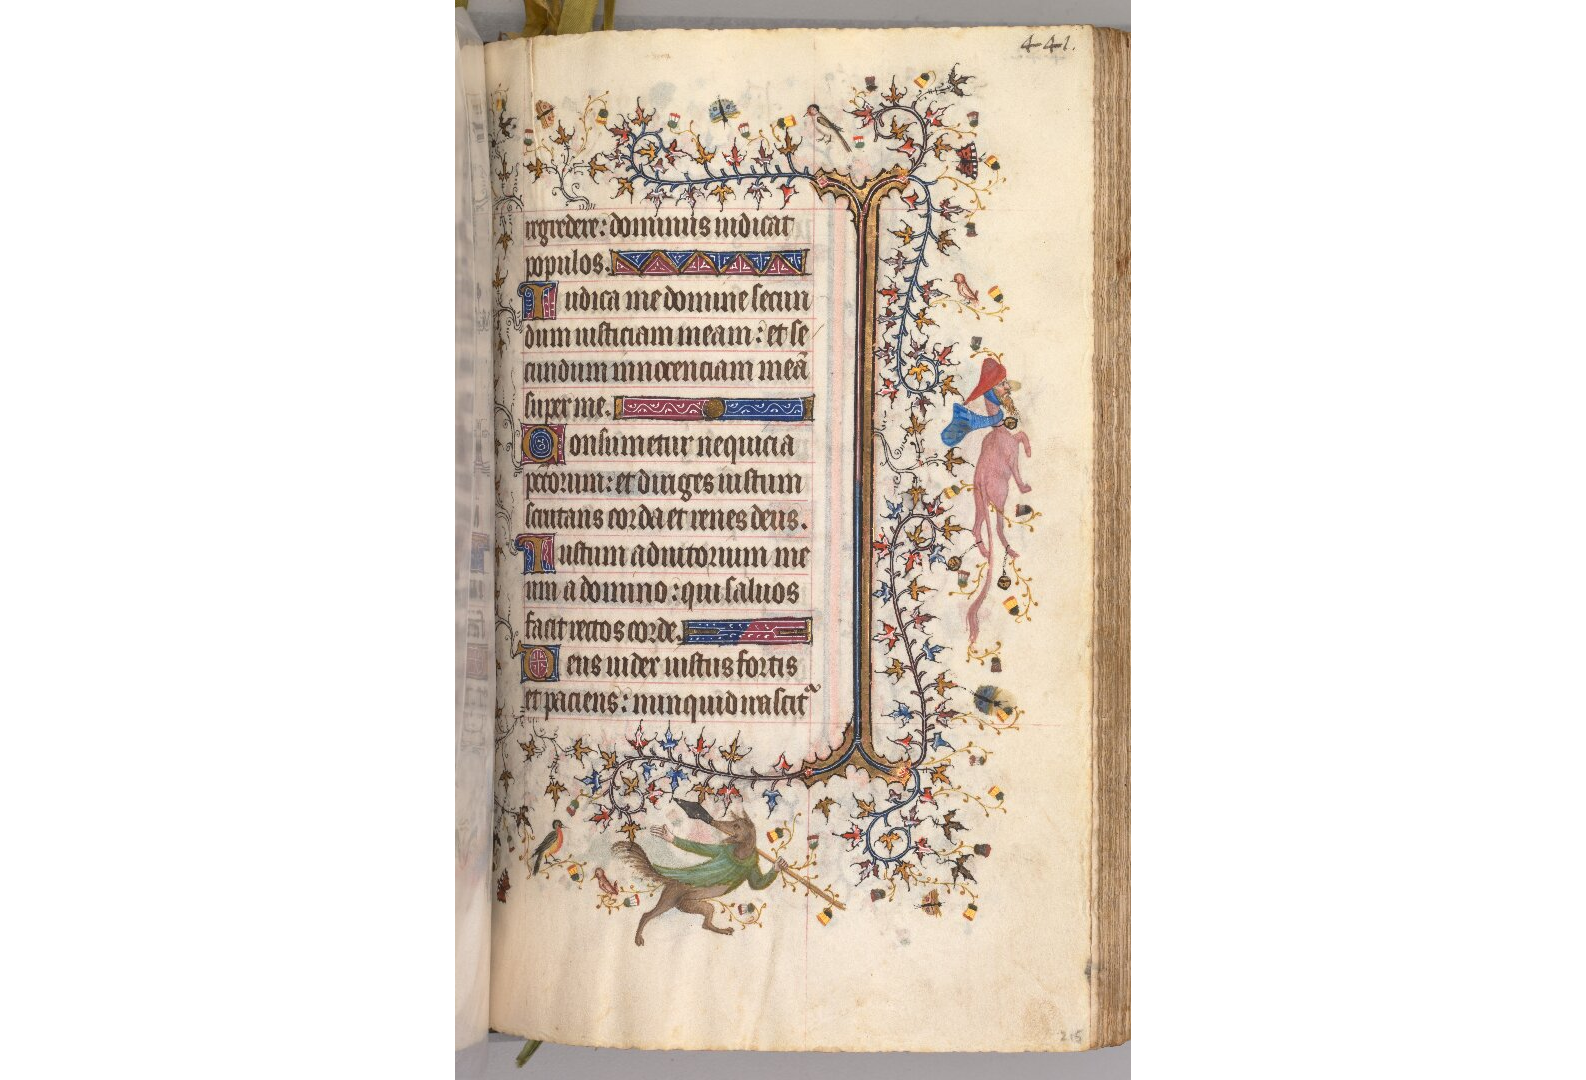 441.
regredere: dominus iudicat
populos.
Iudica me domine secun
dum iusticiam meam: et se
cundum innocenciam meā
super me.
Consumetur nequicia
peccatorum: et diriges iustum
scrutans corda et renes deus.
Iustum adiutorium me
um a domino: qui saluos
facit rectos corde.
Deus iudex iustus fortis
et paciens: nunquid irascitᵃ
215